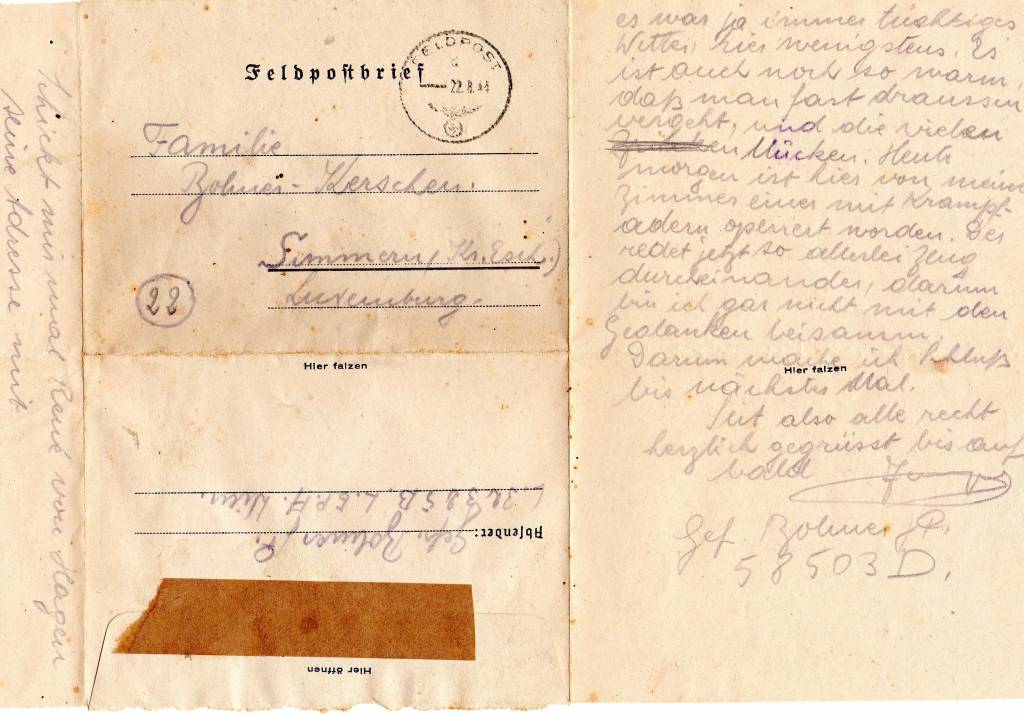 Feldpostbrief
FELDPOST
22.8.44
Familie
Bohmer-Kerschen.
Simmern (Kr. Esch.)
Luxemburg.
22
Hier falzen
Absender: Gefr. Bohmer P.
Hier öffnen
schickt mir mal René von Hagen
seine Adresse mit
es war ja immer tüchtiges
Wetter, hier wenigstens. Es
ist auch noch so warm,
daß man fast draussen
vergeht, und die vielen
Mücken. Heute
morgen ist hier von meinem
Zimmer einer mit Krampf-
adern operiert worden. Der
redet jetzt so allerlei Zeug
durcheinander, darum
bin ich gar nicht mit den
Gedanken beisamm.
Darum mache ich schluß
bis nächstes Mal.
Hier falzen
Seit also alle recht
herzlich gegrüsst bis auf
bald
Gef. Bohmer P.
58503 D.